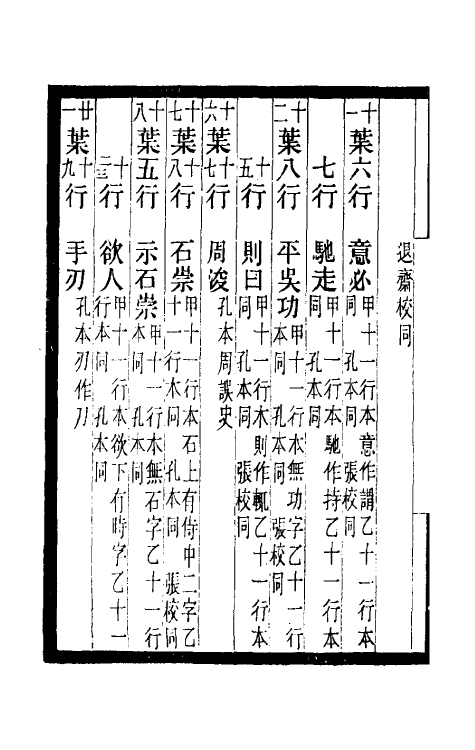 退齋校同
十一葉六行　意必甲十一行本意作謂乙十一行本同　孔本同　張校同
七行　馳走甲十一行本馳作持乙十一行本同　孔本同
十二葉八行　平吳功甲十一行本無功字乙十一行本同　孔本同　張校同
十五行　則曰甲十一行本則作輒乙十一行本同　孔本同　張校同
十六葉十七行　周浚孔本周誤史
十七葉十八行　石崇甲十一行本石上有侍中二字乙十一行本同　孔本同　張校同
十八葉五行　示石崇甲十一行本無石字乙十一行本同　孔本同
十二三行　欲人甲十一行本欲下有時字乙十一行本同　孔本同
廿一葉十九行　手刃孔本刃作刀